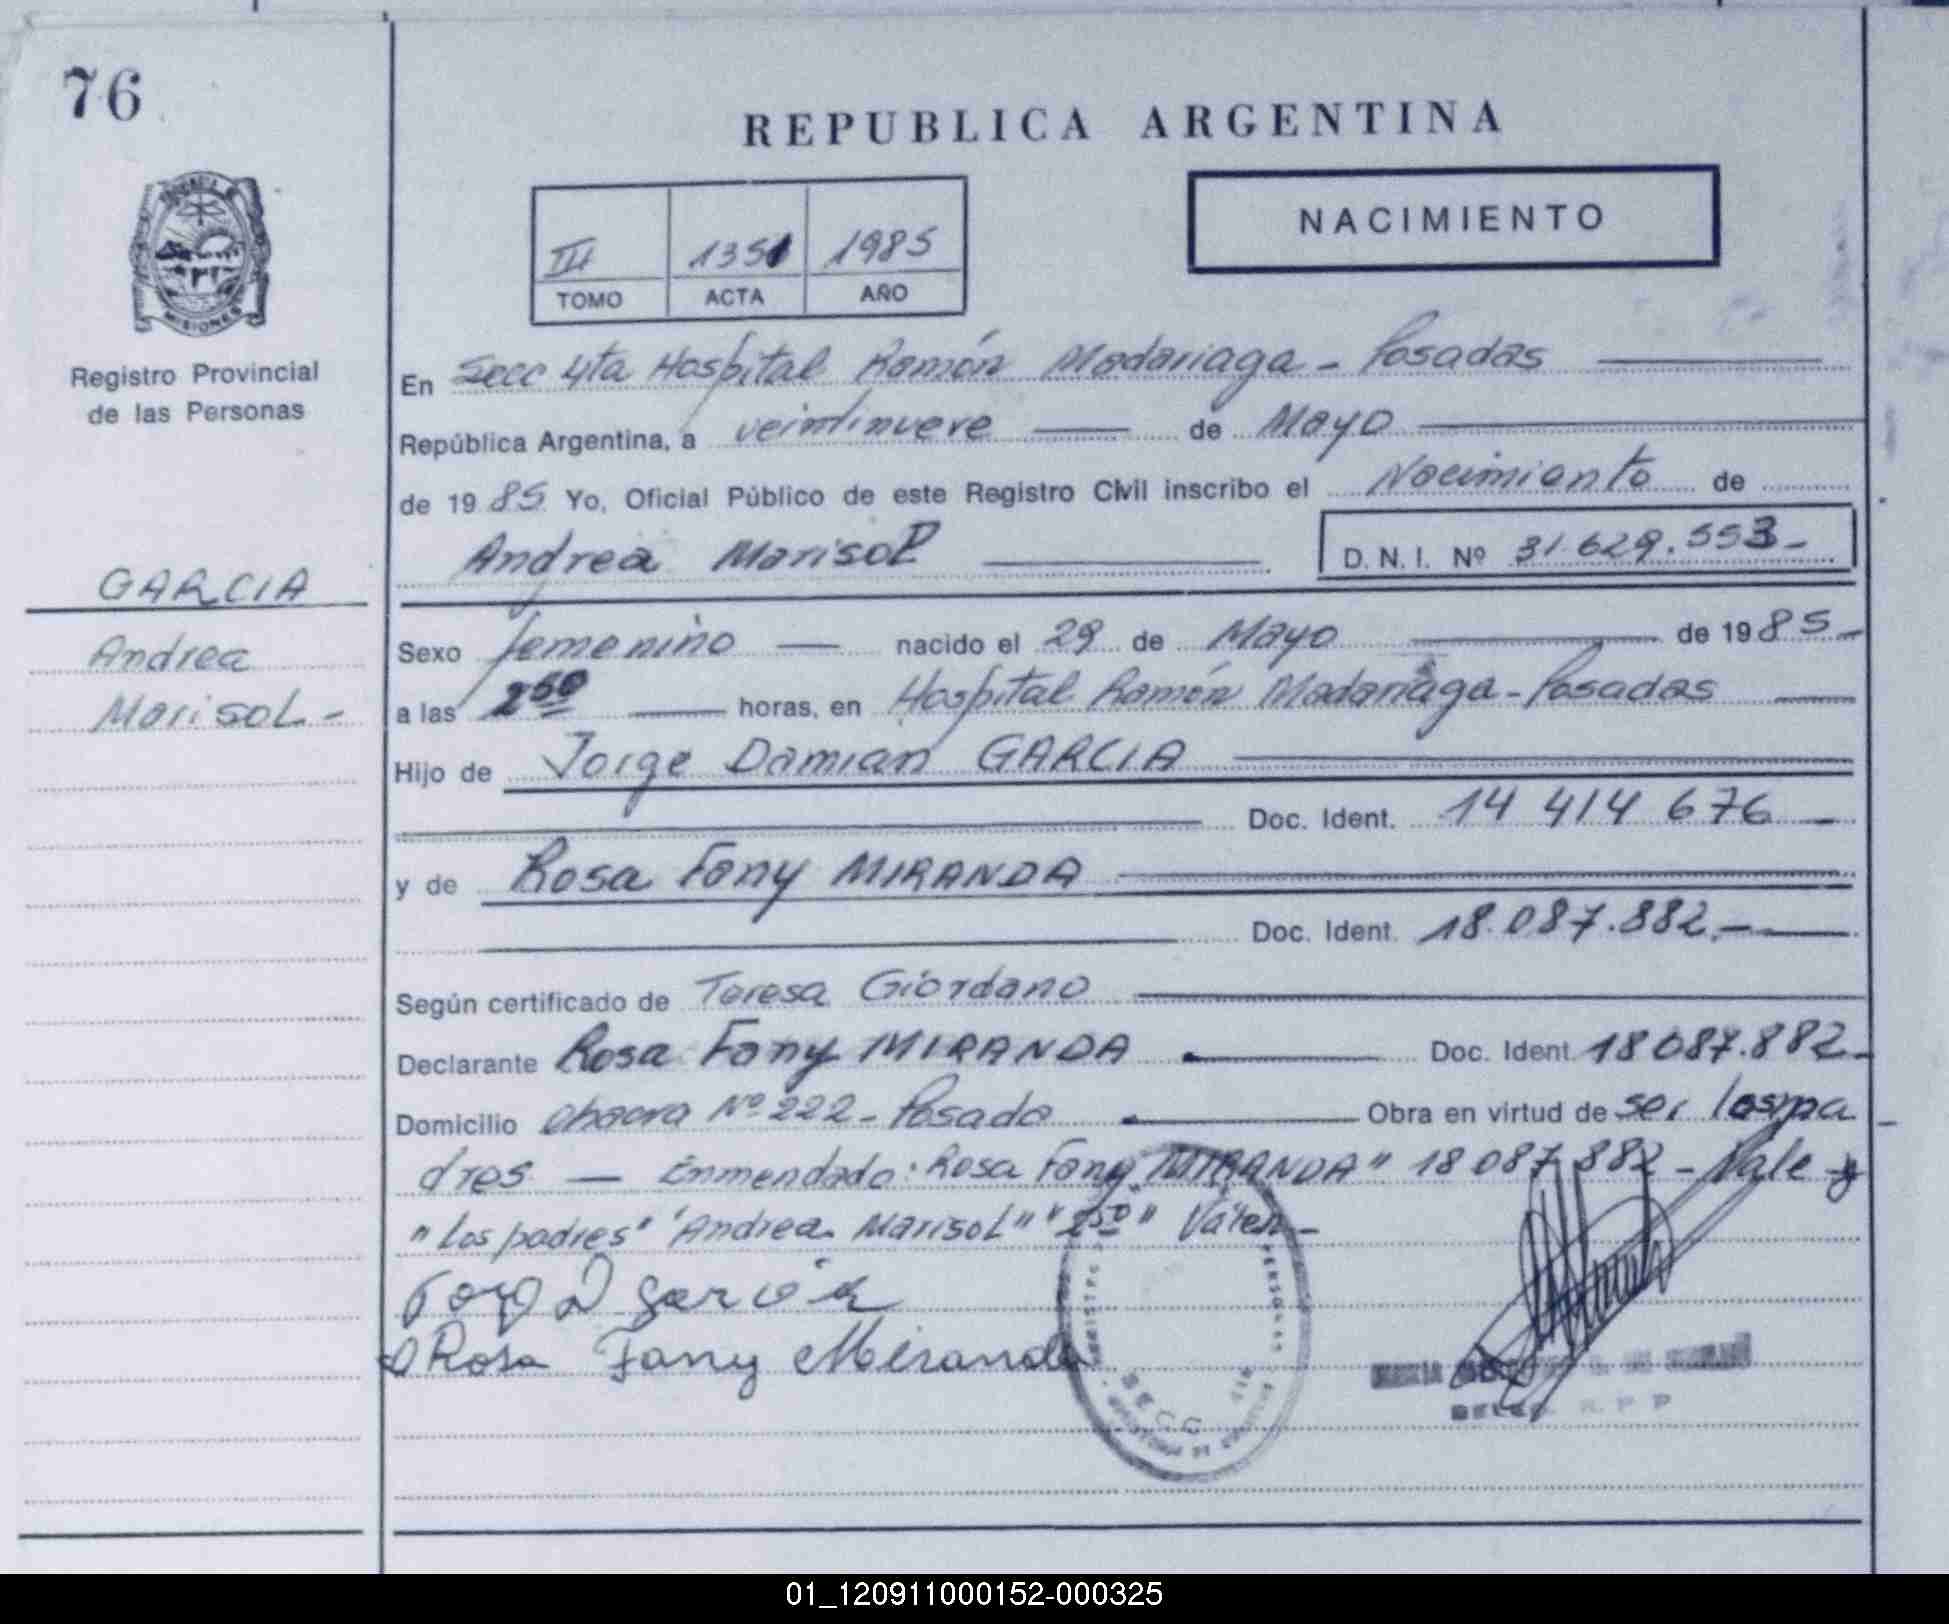 76
REPUBLICA ARGENTINA
NACIMIENTO
III 1351 1985
TOMO ACTA AÑO
MISIONES
Registro Provincial
de las Personas
GARCIA
Andrea
Marisol-
En Secc 4ta Hospital Ramón Madariaga - Posadas
República Argentina, a veintinueve de Mayo
de 1985 Yo, Oficial Público de este Registro Civil inscribo el Nacimiento de
Andrea Marisol D. N. I. Nº 31.629.553-
Sexo femenino nacido el 29 de Mayo de 1985-
a las 2 50 horas, en Hospital Ramón Madariaga - Posadas
Hijo de Jorge Damian GARCIA
Doc. Ident. 14 414 676 -
y de Rosa Fany MIRANDA
Doc. Ident. 18.087.882.-
Según certificado de Teresa Giordano
Declarante Rosa Fany MIRANDA Doc. Ident 18087.882-
Domicilio chacra Nº 222 - Posada Obra en virtud de ser los pa
dres - Enmendado: Rosa Fany MIRANDA" 18 087 882 - Vale y
"Los padres" "Andrea Marisol" "2 50" Valen-
D Garcia
Rosa Fany Miranda
SECC
R. P. P
01_120911000152-000325